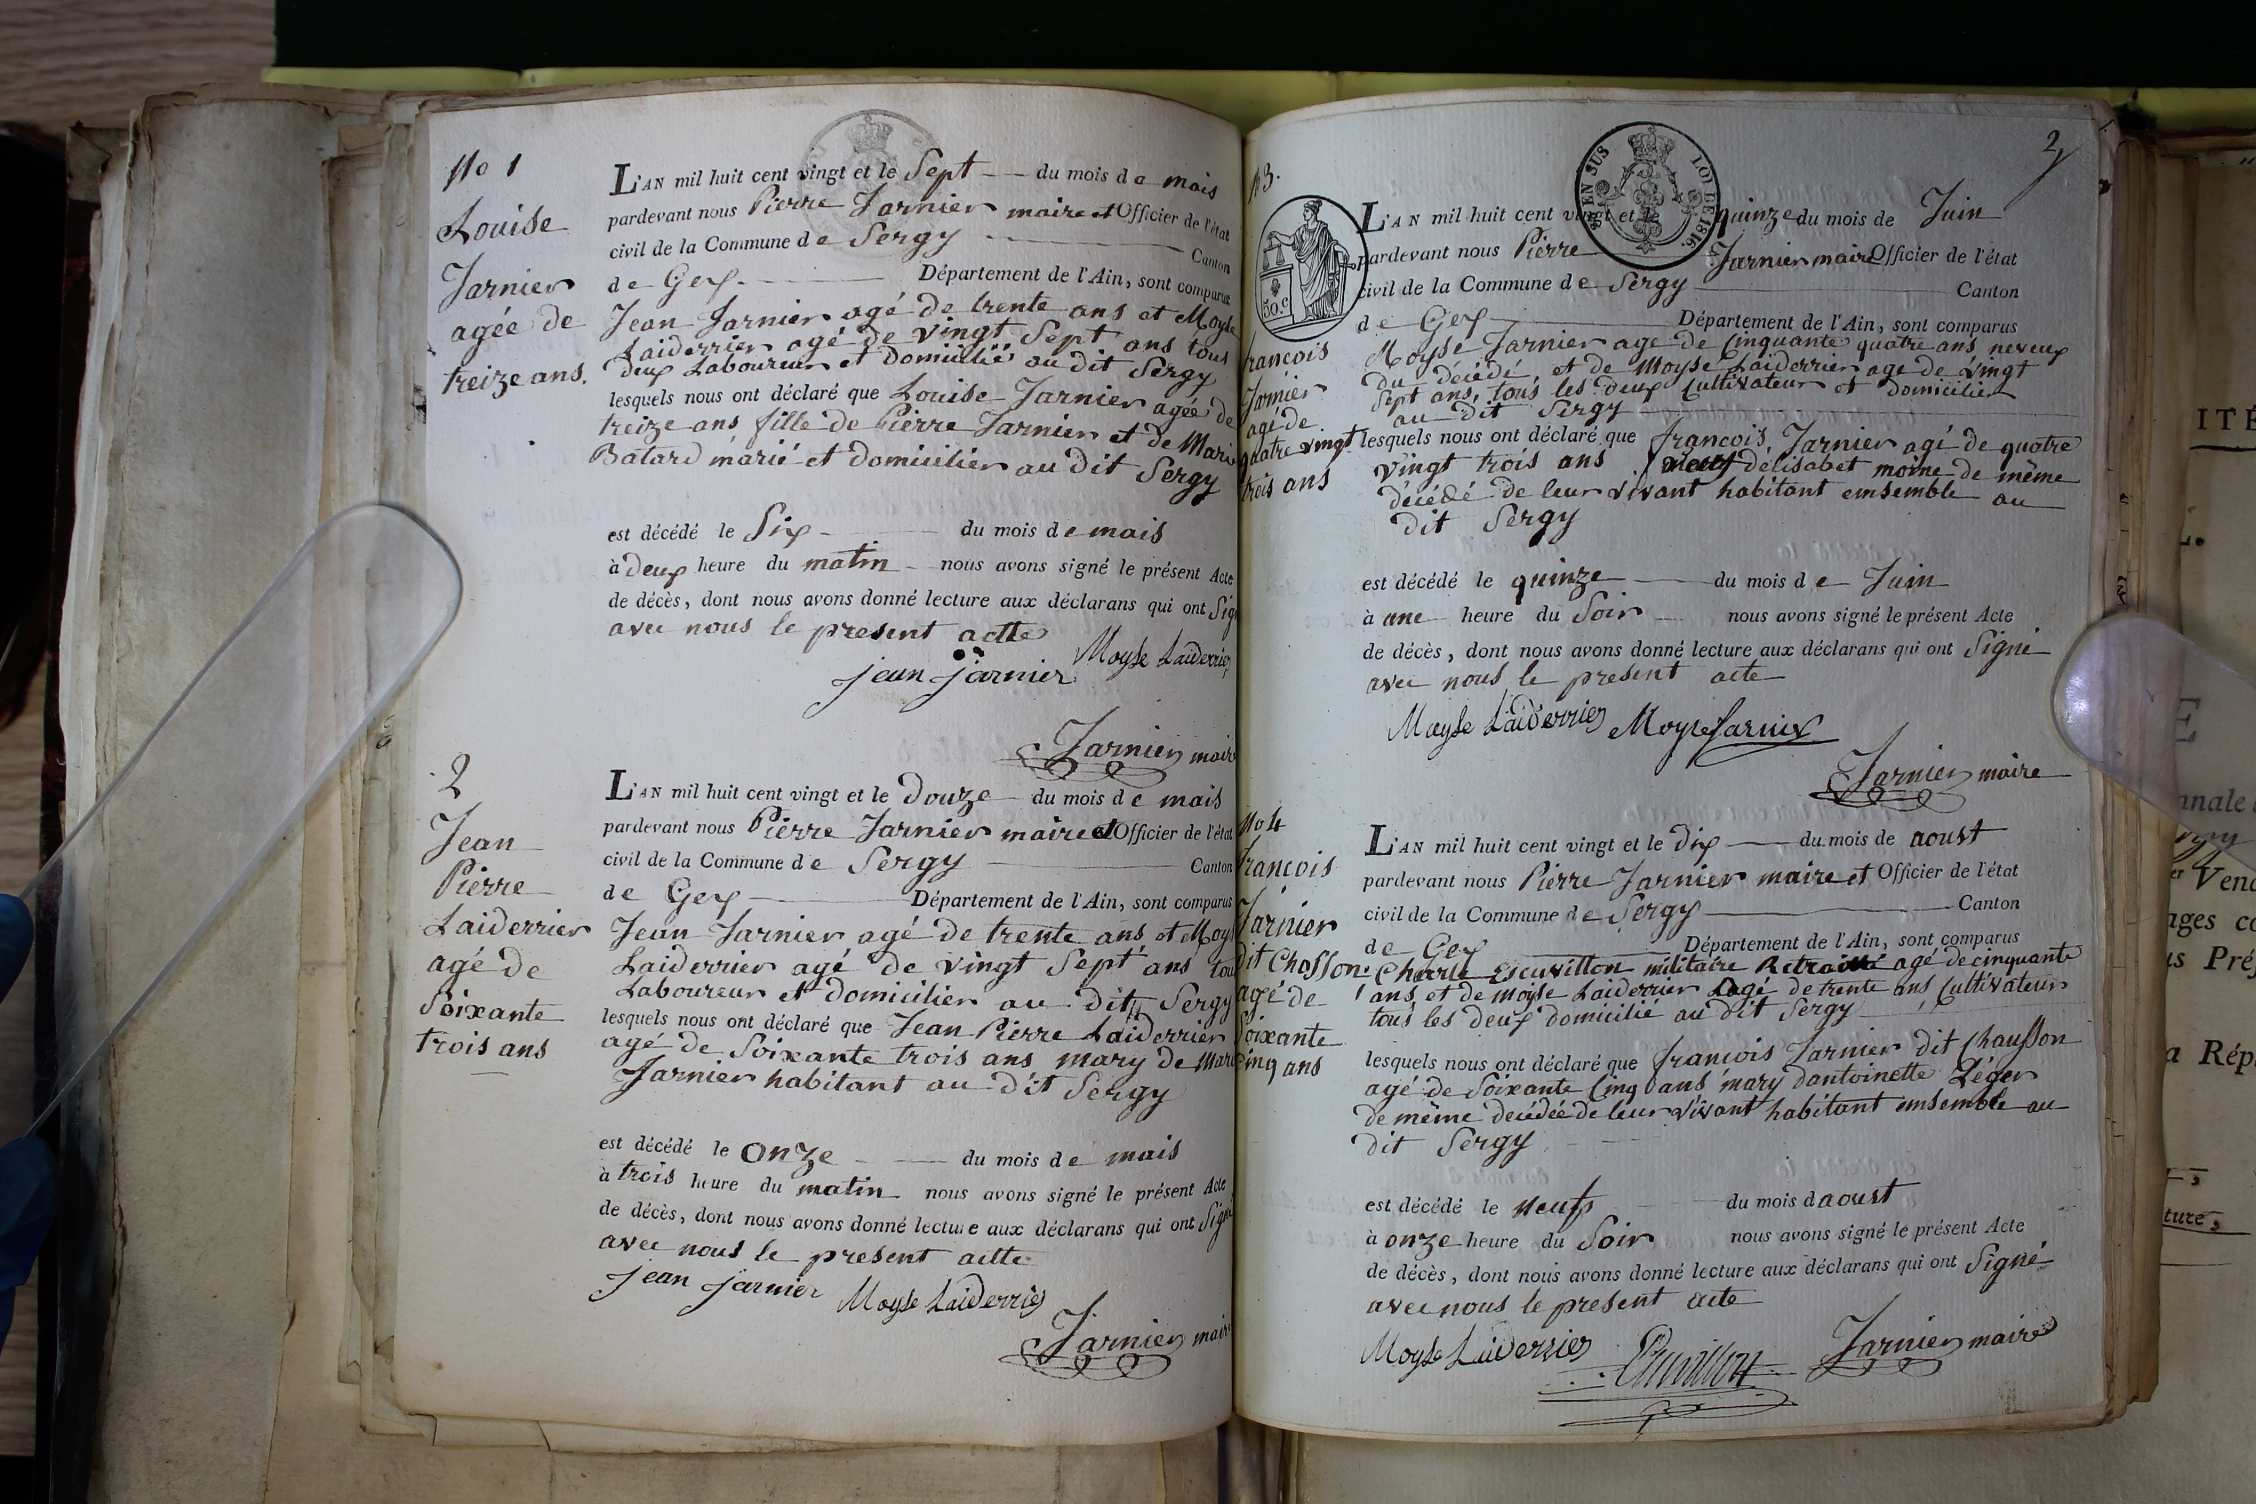 No 1
Louise
Jarnier
agée de
treize ans.
L'AN mil huit cent vingt et le Sept du mois de mais
pardevant nous Pierre Jarnier maire et Officier de l'état
civil de la Commune de Sergy Canton
de Gex Département de l'Ain, sont comparus
Jean Jarnier agé de trente ans et Moyse
Laiderrier agé de vingt Sept ans tous
deux Laboureur et domicilié au dit Sergy
lesquels nous ont déclaré que Louise Jarnier agée de
treize ans fille de Pierre Jarnier et de Marie
Batard marié et domicilier au dit Sergy
est décédé le Six du mois de mais
à deux heure du matin nous avons signé le présent Acte
de décès, dont nous avons donné lecture aux déclarans qui ont Signé
avec nous le present actte
jean jarnier Moyse Laiderrier
Jarnier maire
2
Jean
Pierre
Laiderrier
agé de
Soixante
trois ans
L'AN mil huit cent vingt et le Douze du mois de mais
pardevant nous Pierre Jarnier maire et Officier de l'état
civil de la Commune de Sergy Canton
de Gex Département de l'Ain, sont comparus
Jean Jarnier agé de trente ans et Moyse
Laiderrier agé de vingt Sept ans tous
Laboureur et domicilier au dit Sergy
lesquels nous ont déclaré que Jean Pierre Laiderrier
agé de Soixante trois ans mary de Marie
Jarnier habitant au dit Sergy
est décédé le onze du mois de mais
à trois heure du matin nous avons signé le présent Acte
de décès, dont nous avons donné lecture aux déclarans qui ont Signé
avec nous le present actte
jean jarnier Moyse Laiderrier
Jarnier maire
2
8 EN SUS LOI DE 1816.
50.c
No 3.
francois
Jarnier
agé de
quatre vingt
trois ans
L'AN mil huit cent vingt et le quinze du mois de Juin
pardevant nous Pierre Jarnier maire Officier de l'état
civil de la Commune de Sergy Canton
de Gex Département de l'Ain, sont comparus
Moyse Jarnier age de Cinquante quatre ans neveux
du décédé, et de Moyse Laiderrier age de vingt
Sept ans, tous les deux Cultivateur et domicilier
au dit Sergy
lesquels nous ont déclaré que françois Jarnier agé de quatre
vingt trois ans délisabet moine de même
décédé de leur vivant habitant emsemble au
dit Sergy
est décédé le quinze du mois de Juin
à une heure du Soir nous avons signé le présent Acte
de décès, dont nous avons donné lecture aux déclarans qui ont Signé
avec nous le present acte
Moyse Laiderrier Moyse Jarnier
Jarnier maire
No 4
francois
Jarnier
dit Chosson
agé de
Soixante
Cinq ans
L'AN mil huit cent vingt et le dix du mois de aoust
pardevant nous Pierre Jarnier maire et Officier de l'état
civil de la Commune de Sergy Canton
de Gex Département de l'Ain, sont comparus
Charle Escuvillon militaire Retraité agé de cinquante
ans et de Moyse Laiderrier agé de trente ans Cultivateur
tous les deux domicilié au dit Sergy
lesquels nous ont déclaré que francois Jarnier dit Chausson
agé de Soixante Cinq ans mary dantoinette Léger
de même decédée de leur vivant habitant emsemble au
dit Sergy
est décédé le neuf du mois daoust
à onze heure du Soir nous avons signé le présent Acte
de décès, dont nous avons donné lecture aux déclarans qui ont Signé
avec nous le present acte
Moyse Laiderrier Jarnier maire
ITÉ
Répu
ture,